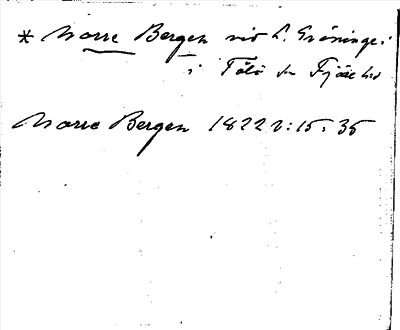 * Norre Bergen vid L. Gröninge i
i Tölö sn Fjäre hd
Norre Bergen 1822 2:15, 35